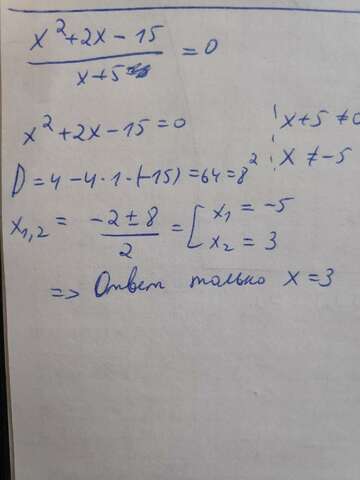 x²+2x-15
x+5 = 0
x²+2x-15=0
x+5≠0
D=4-4·1·(-15)=64=8²
x≠-5
x₁,₂ = (-2±8)/2 = [x₁=-5
x₂=3
=> Ответ только x=3